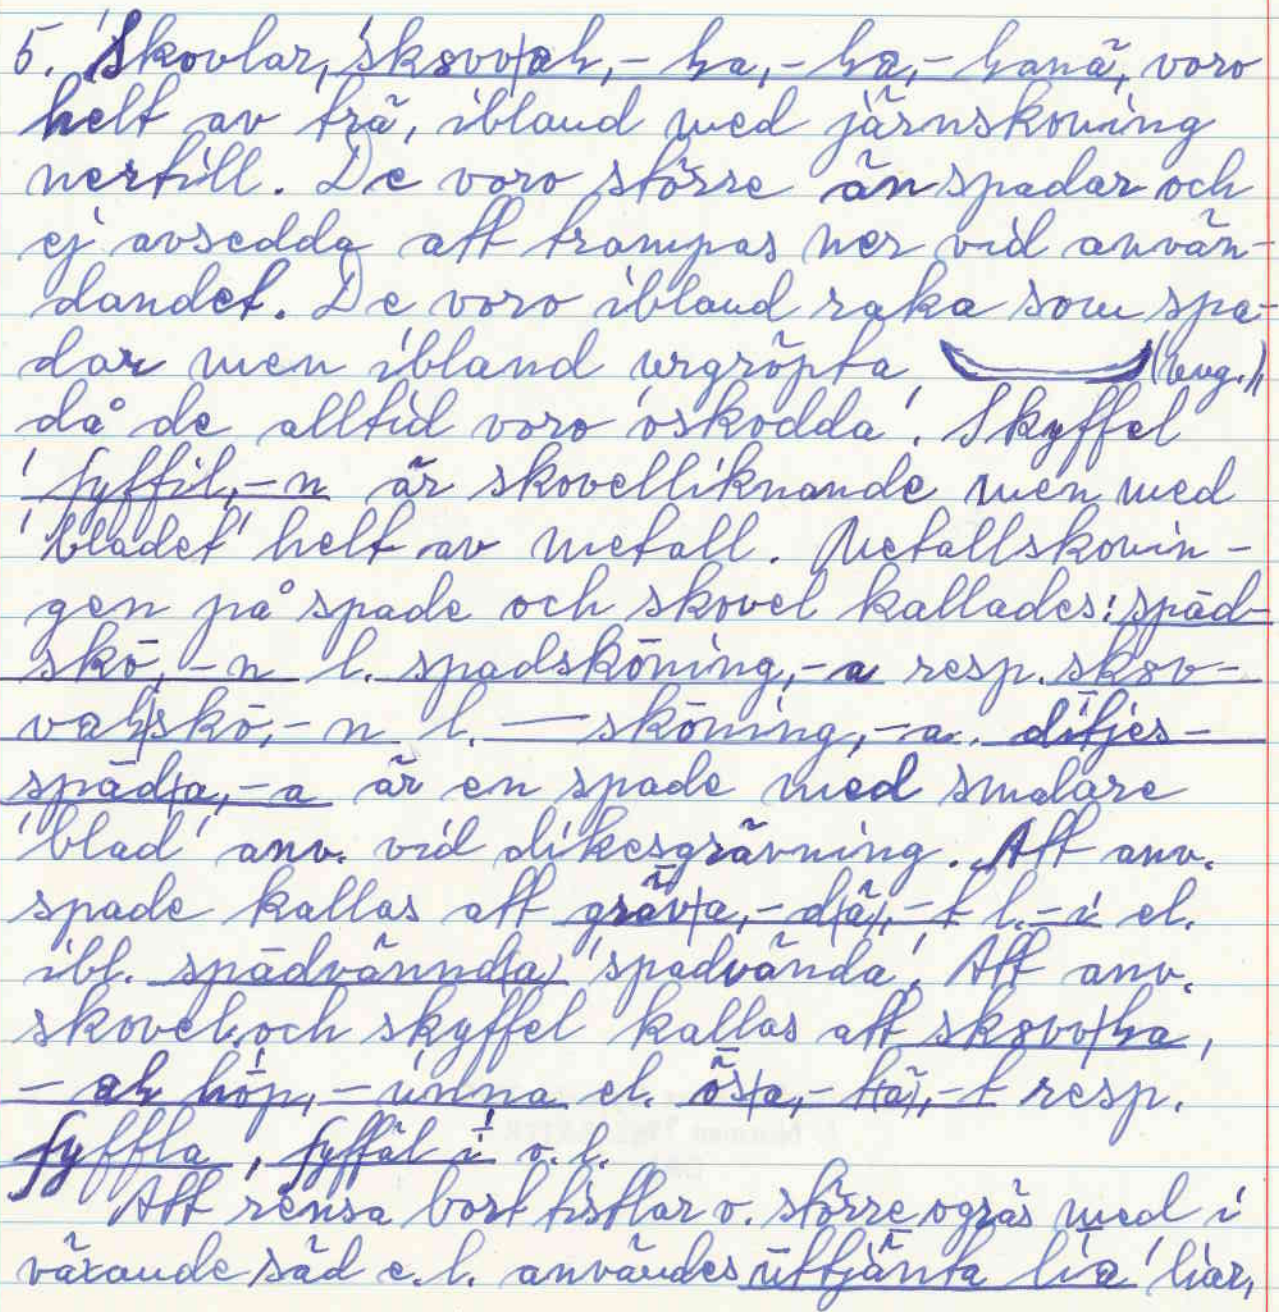 5. 'Skovlar, skovv|aɫ, -ɫa, -ɫa, -ɫanä, voro
helt av trä, ibland med järnskoning
nertill. De voro större än spadar och
ej avsedda att trampas ner vid använ-
dandet. De voro ibland raka som spa-
dar men ibland urgröpta (ung.),
då de alltid voro 'oskodda'. Skyffel
ʃyffil, -n är skovelliknande men med
'bladet' helt av metall. Metallskonin-
gen på spade och skovel kallades: spād-
skō, -n l. spadskōning, -a resp. skov-
vaɫ|skō, -n l. — skōning, -a. dītjes-
spād|a, -a är en spade med smalare
'blad' anv. vid dikesgrävning. Att anv.
spade kallas att gräv|a, -d(ä), -t l. -i el.
ibl. spādvännd(a) 'spadvända'. Att anv.
skovel och skyffel kallas att skovv|ɫa,
-aɫ hóp, -unna el. ös|a, -t(ä), -t resp.
ʃyffla, ʃyffäl í o. l.
Att rensa bort tistlar o. större ogräs med i
växande säd e. l. användes ūttjänta līa 'liar,